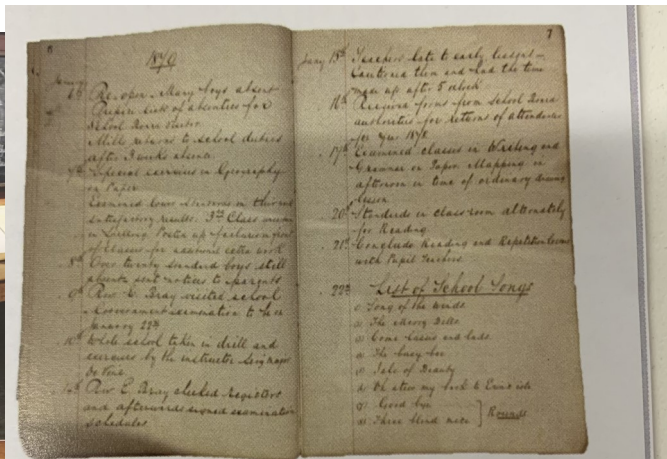 6
1879
January
6th Re-open. Many boys absent
Prepare lists of absentees for
School Board Visitor.
Mill returns to school duties
after 3 weeks absence.
7th Special exercises in Geography
on Paper
Examined lower Standards in this with
satisfactory results. 3rd Class
in
of Classes for extra work
8th Over twenty standard boys still
absent, sent notices to parents
9th Rev. E. Bray visited school
Government examination to be on
January 22nd
10th Whole school taken in drill and
exercises by the instructor Serg. Major
De Vine
Rev E. Bray checked registers
and afterwards signed examination
schedules
7
Jany 15th Teachers late to early lessons—
Cautioned them and had the time
made up after 5 o'clock
16th Received forms from School Board
authorities for returns of attendance
for year 1878.
17th Examined classes in Writing and
Grammar on Paper. Mapping in
afternoon in time of ordinary
lesson
20th Standards in class room alternately
for Reading.
21st Conclude Reading and Repetition lessons
with Pupil Teachers
22nd List of School Songs
Song of the winds
The Merry Bells
Come lasses and lads
The busy bee
Isle of Beauty
Oh steer my bark to Erin's isle
Good bye
Three blind mice } Rounds